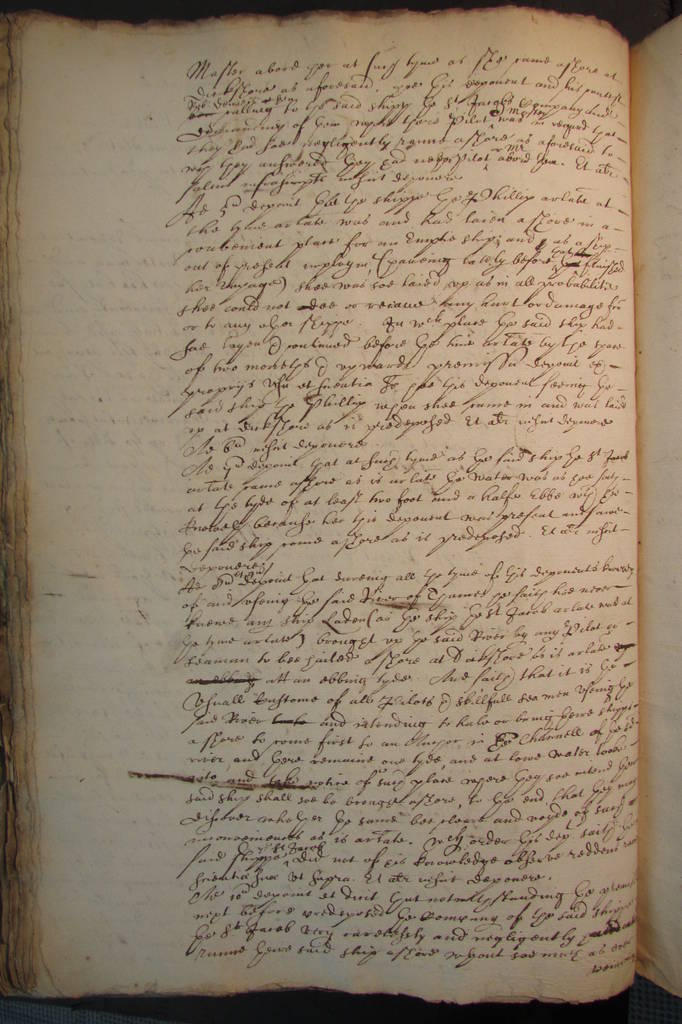 Master aboard her at such tyme as shee came ashore at
Dickshore as aforesaid. hee this deponent and his
calling to the said shipps the St Jacobs Company and
demanding of them where theire Pilot was in regard that
they had soe negligently runne ashore as aforesaid to
wch they answered they had noe Pilot aboard her. Et alr
nescit deponere
Ad 5 deponit That the shippe the Phillip arlate at
the tyme arlate was and had laien ashore in a
convenient place for an Emptie ship; and as a ship
out of present imploymt, (haveing lately before finished
her voyage) shee was soe laied up as in all probabilitie
shee could not doe or receive any hurt or damage fro
or to any other shippe. In wch place the said ship had
soe layen & continued before the time arlate by the space
of two moneths & upwards premissa deponit ex
proprijs visu et scientia hee this deponent seeing the
said ship the Phillip when shee came in and was laied
up at Dickshore as is predeposed Et alr nescit deponere
Ad 6 nescit deponere
Ad deponit that at such tyme as the said ship the St Jacob
arlate came ashore as is arlate the water was as hee saith
at the tyde of at least two foot and a halfe Ebbe wch hee
knoweth because hee this deponent was present and sawe
the said ship come ashore as is predeposed. Et alr nescit
deponere
Ad deponit That dureing all the tyme of this deponents knowing
of and useing the said River of Thames he saith hee never
knewe any ship Laden (as the ship the St Jacob arlate was at
the tyme arlate) brought up the said River by any Pilot or
seaman to bee haled ashore at Dickshore as is arlate
att an ebbing tyde. And saith that it is the
Usuall Custome of all Pilots & skillfull sea men useing the
said River and intending to hale or bring theire shipps
ashore to come first to an Anchor in the Channell of the
river and there remaine one tyde, and at lowe water looke
and take notice of such place where they soe intend theire
said ship shall soe be brought ashore, to the end that they may
discover whether the same bee cleere and voyde of such
inconveniences as is arlate. Wch order this dept saith the
said shippe the St Jacob did not of his knowledge observe reddens
scientia sua ut supra. Et alr nescit deponere.
Ad 10 deponit et dicit That notwithstanding the premisses
next before predeposed the Company of the said shippe
the St Jacob very carelessly and negligently
runne theire said ship ashore without soe much as ever